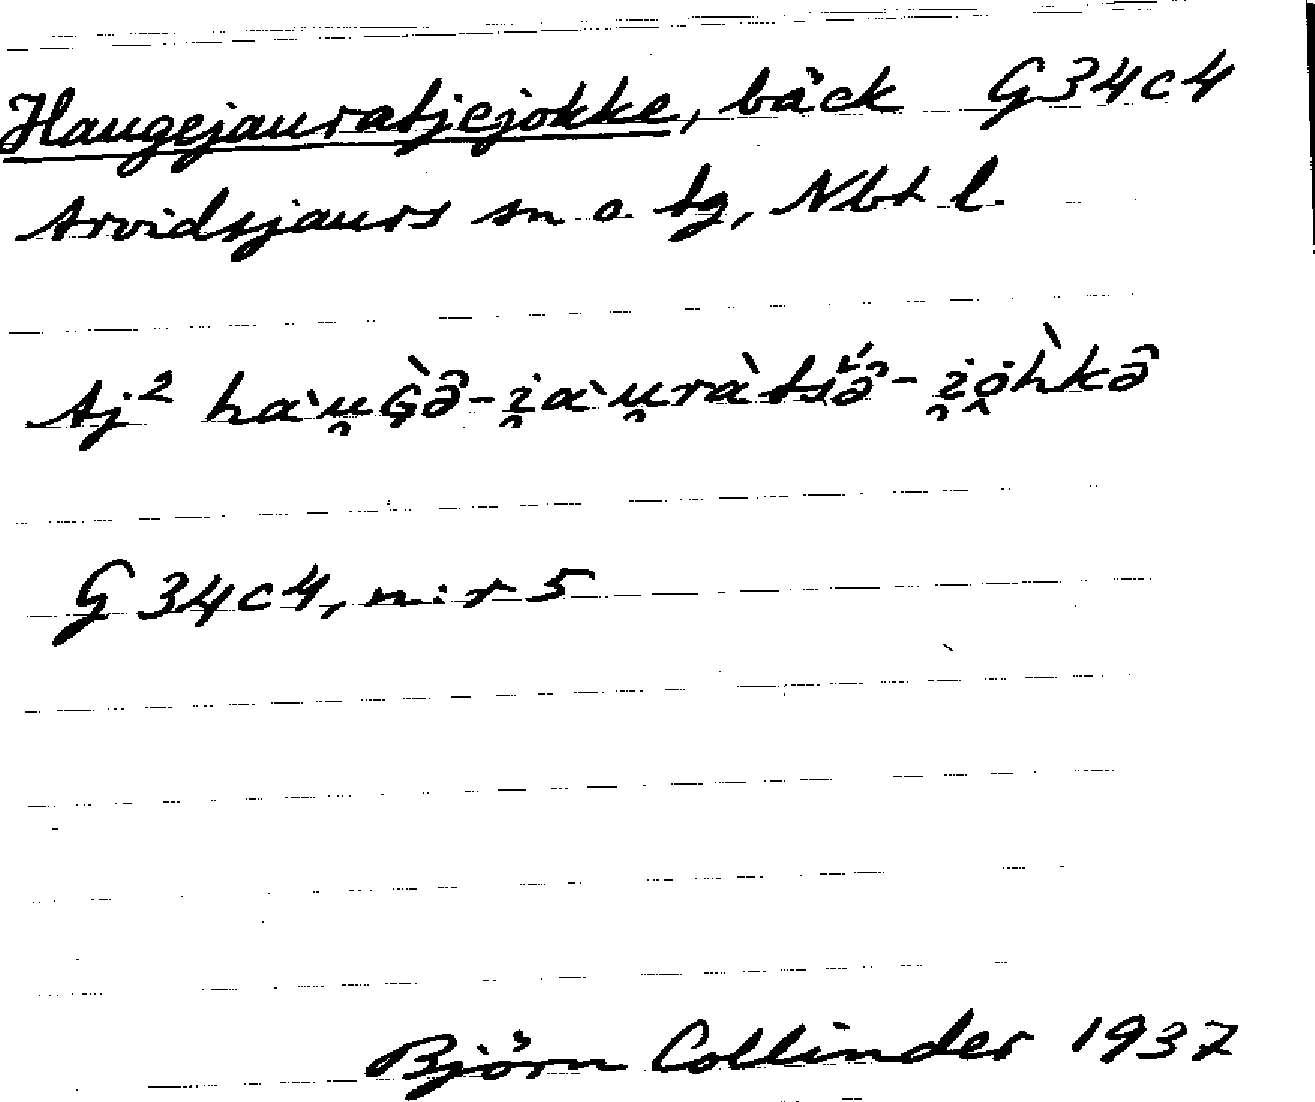 Haugejauratjejokke, bäck G34c4
Arvidsjaurs sn o. tg, Nbt l.
Aj²
G 34c4, n:r 5
Björn Collinder 1937